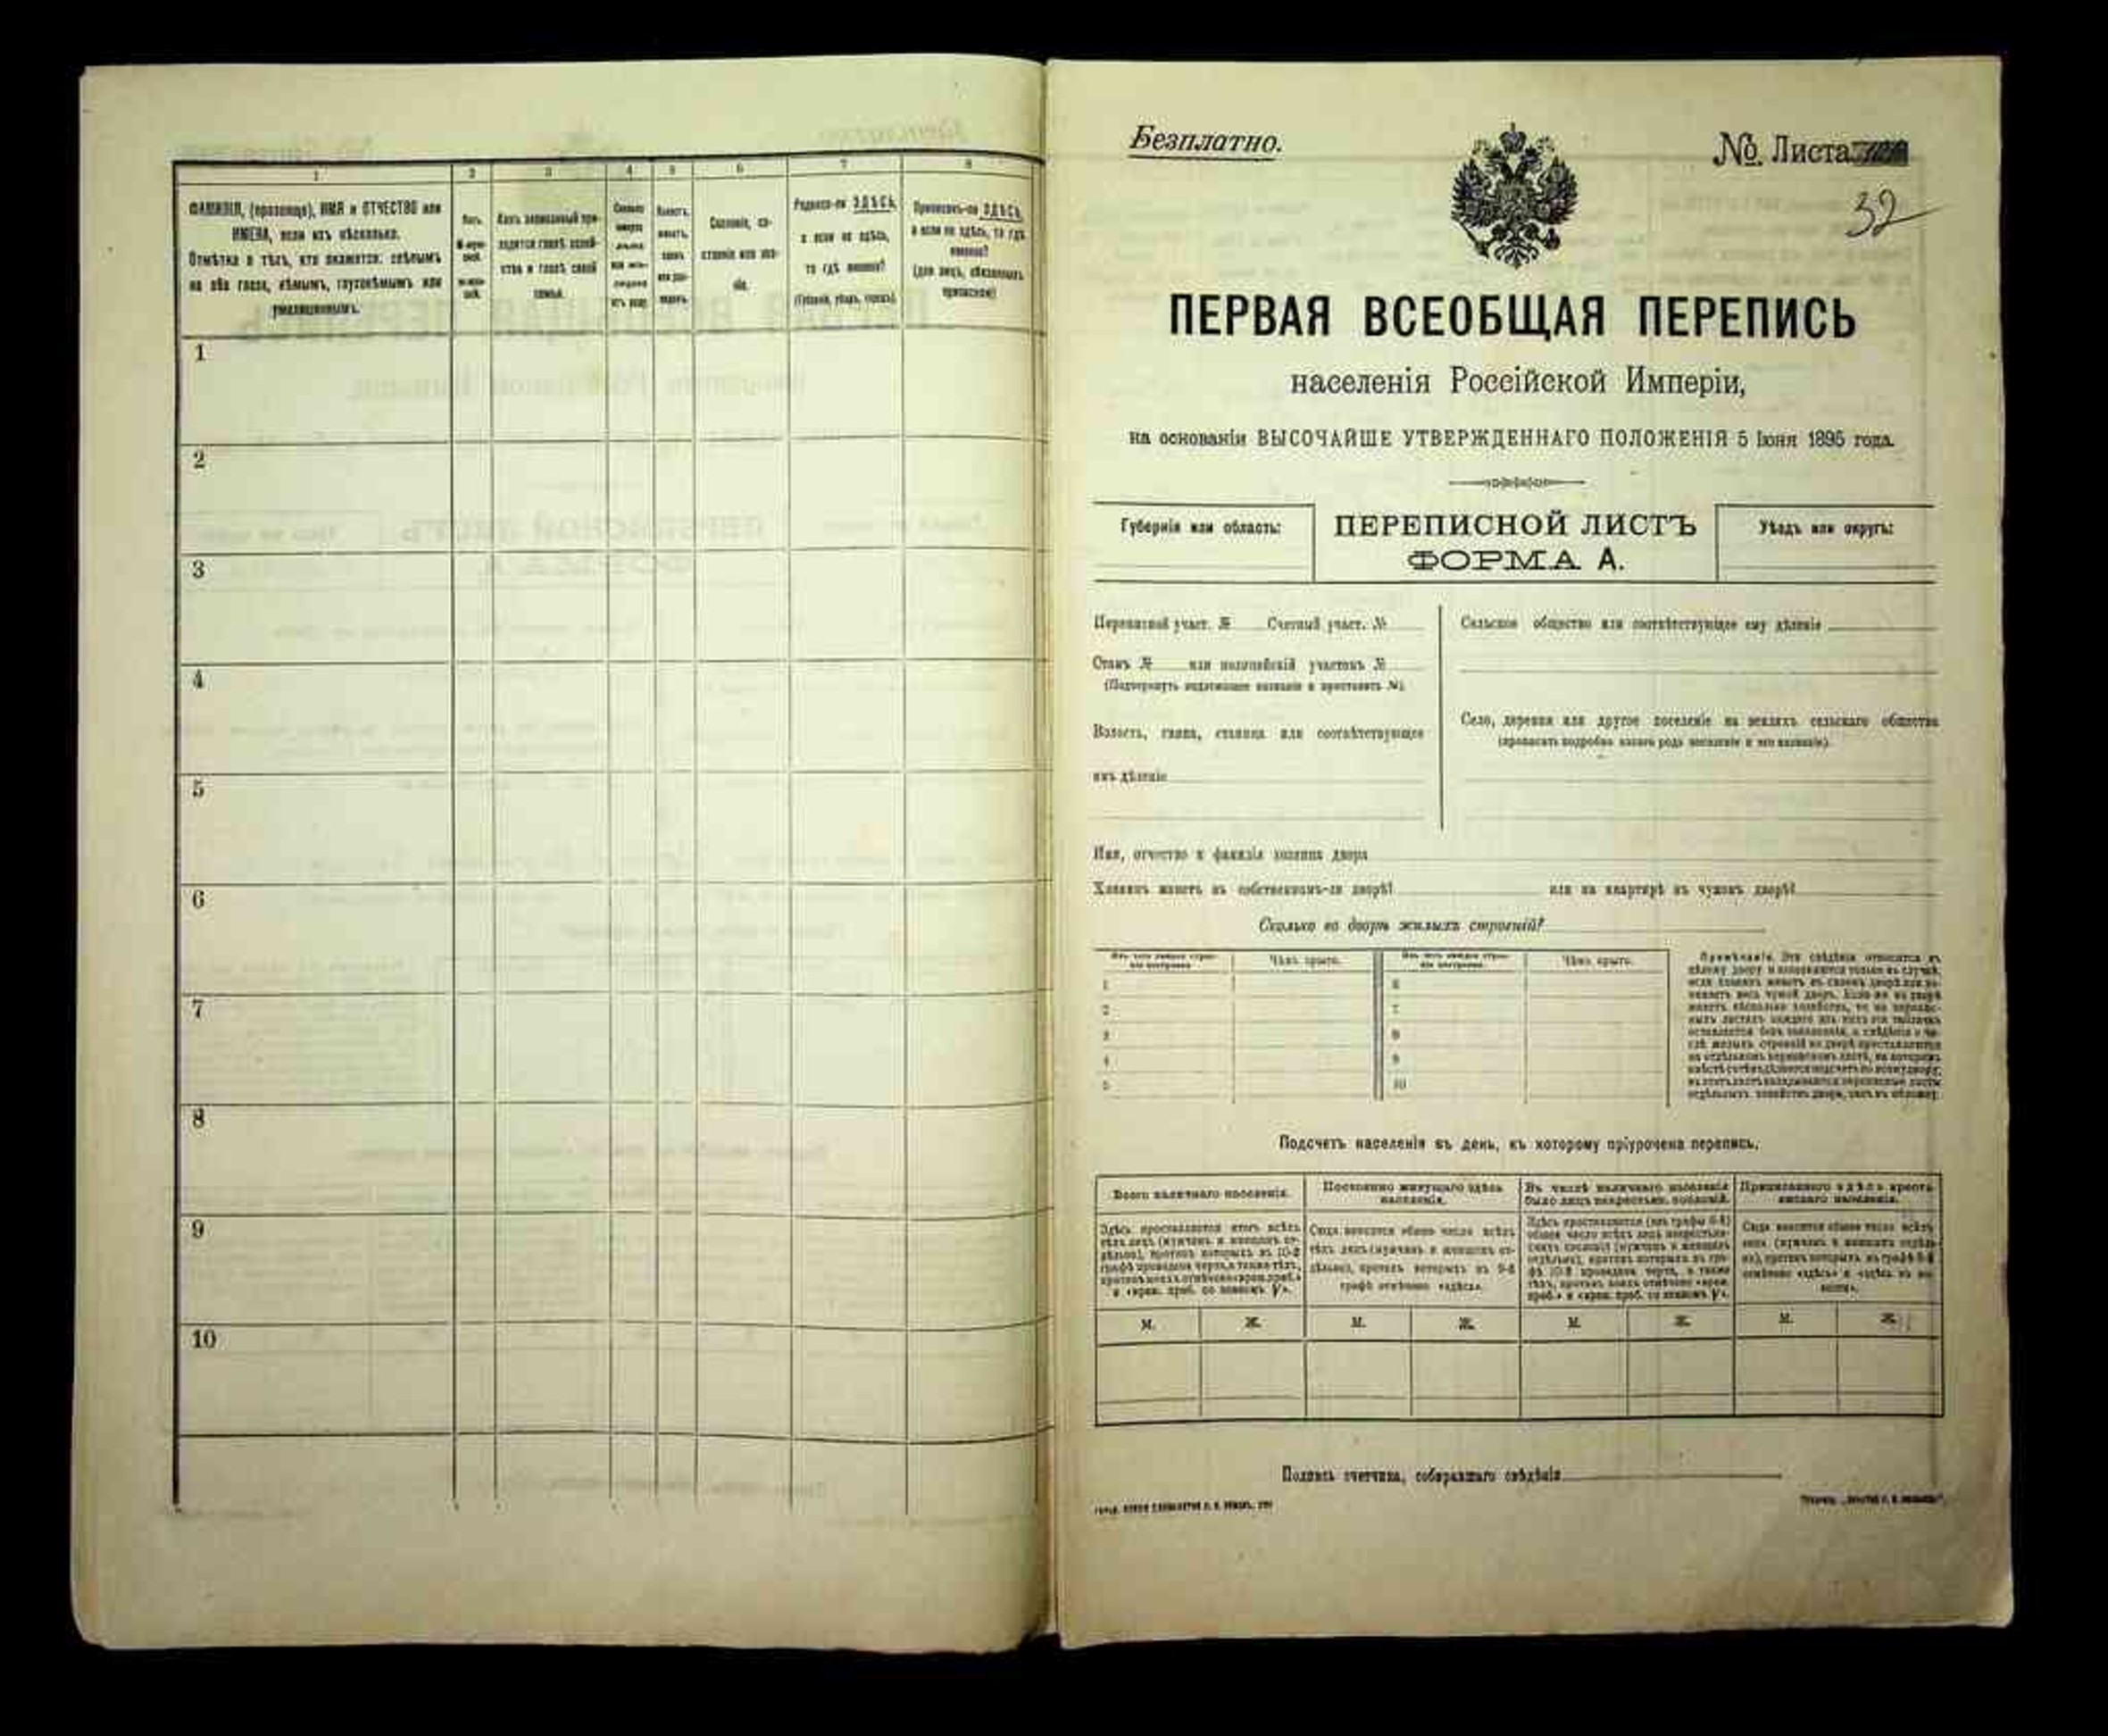 1 2 3 4 5 6 7 8
ФАМИЛІЯ, (прозвище), ИМЯ и ОТЧЕСТВО или
ИМЕНА, если ихъ нѣсколько.
Отмѣтка о тѣхъ, кто окажется: слѣпымъ
на оба глаза, нѣмымъ, глухонѣмымъ или
умалишеннымъ.
Полъ.
Какъ записанный при-
ходится главѣ хозяй-
ства и главѣ своей
семьи.
Сословіе, со-
стояніе или зва-
ніе.
Родился-ли ЗДѢСЬ,
а если не здѣсь,
то гдѣ именно?
(Губернія, уѣздъ, городъ).
Приписанъ-ли ЗДѢСЬ,
а если не здѣсь, то гдѣ
именно?
(для лицъ, обязанныхъ
припискою)
1
2
3
4
5
6
7
8
9
10
Безплатно.
№ Листа
32
ПЕРВАЯ ВСЕОБЩАЯ ПЕРЕПИСЬ
населенія Россійской Имперіи,
на основаніи ВЫСОЧАЙШЕ УТВЕРЖДЕННАГО ПОЛОЖЕНІЯ 5 Іюня 1895 года.
Губернія или область:
ПЕРЕПИСНОЙ ЛИСТЪ
ФОРМА А.
Уѣздъ или округъ:
Переписной участ. № Счетный участ. №
Станъ № или полицейскій участокъ №
(Подчеркнуть надлежащее названіе и проставить №).
Волость, гмина, станица или соотвѣтствующее
имъ дѣленіе
Сельское общество или соотвѣтствующее ему дѣленіе
Село, деревня или другое поселеніе на земляхъ сельскаго общества
(прописать подробно какого рода поселеніе и его названіе).
Имя, отчество и фамилія хозяина двора
Хозяинъ живетъ въ собственномъ-ли дворѣ? или на квартирѣ въ чужомъ дворѣ?
Сколько во дворѣ жилыхъ строеній?
Изъ чего каждое строе-
ніе построено.
Чѣмъ крыто.
Изъ чего каждое строе-
ніе построено.
Чѣмъ крыто.
1 6
2 7
3 8
4 9
5 10
Примѣчаніе. Эти свѣдѣнія относятся къ
цѣлому двору и заполняются только въ случаѣ,
если хозяинъ живетъ въ своемъ дворѣ или за-
нимаетъ весь чужой дворъ. Если-же во дворѣ
живетъ нѣсколько хозяйствъ, то на перепис-
ныхъ листахъ каждаго изъ нихъ эта табличка
оставляется безъ заполненія, а свѣдѣнія о чи-
слѣ жилыхъ строеній во дворѣ проставляются
на отдѣльномъ переписномъ листѣ, на которомъ
вмѣстѣ съ тѣмъ дѣлается подсчетъ по всему двору;
въ этотъ листъ вкладываются переписные листы
отдѣльныхъ хозяйствъ двора, какъ въ обложку.
Подсчетъ населенія въ день, къ которому пріурочена перепись.
Всего наличнаго населенія.
Постоянно живущаго здѣсь
населенія.
Въ числѣ наличнаго населенія
было лицъ некрестьян. сословій.
Приписаннаго здѣсь кресть-
янскаго населенія.
Здѣсь проставляется итогъ всѣхъ
тѣхъ лицъ (мужчинъ и женщинъ от-
дѣльно), противъ которыхъ въ 10-й
графѣ проведена черта, а также тѣхъ,
противъ коихъ отмѣчено «врем. преб.»
и «врем. преб. со знакомъ V».
Сюда вносится общее число всѣхъ
тѣхъ лицъ (мужчинъ и женщинъ от-
дѣльно), противъ которыхъ въ 9-й
графѣ отмѣчено «здѣсь».
Здѣсь проставляется (изъ графы 6-й)
общее число всѣхъ лицъ некрестьян-
скихъ сословій (мужчинъ и женщинъ
отдѣльно), противъ которыхъ въ гра-
фѣ 10-й проведена черта, а также
тѣхъ, противъ коихъ отмѣчено «врем.
преб.» и «врем. преб. со знакомъ V».
Сюда вносится общее число всѣхъ
лицъ (мужчинъ и женщинъ отдѣль-
но), противъ которыхъ въ графѣ 8-й
отмѣчено «здѣсь» и «здѣсь въ во-
лости».
М. Ж. М. Ж. М. Ж. М. Ж.
Подпись счетчика, собиравшаго свѣдѣнія